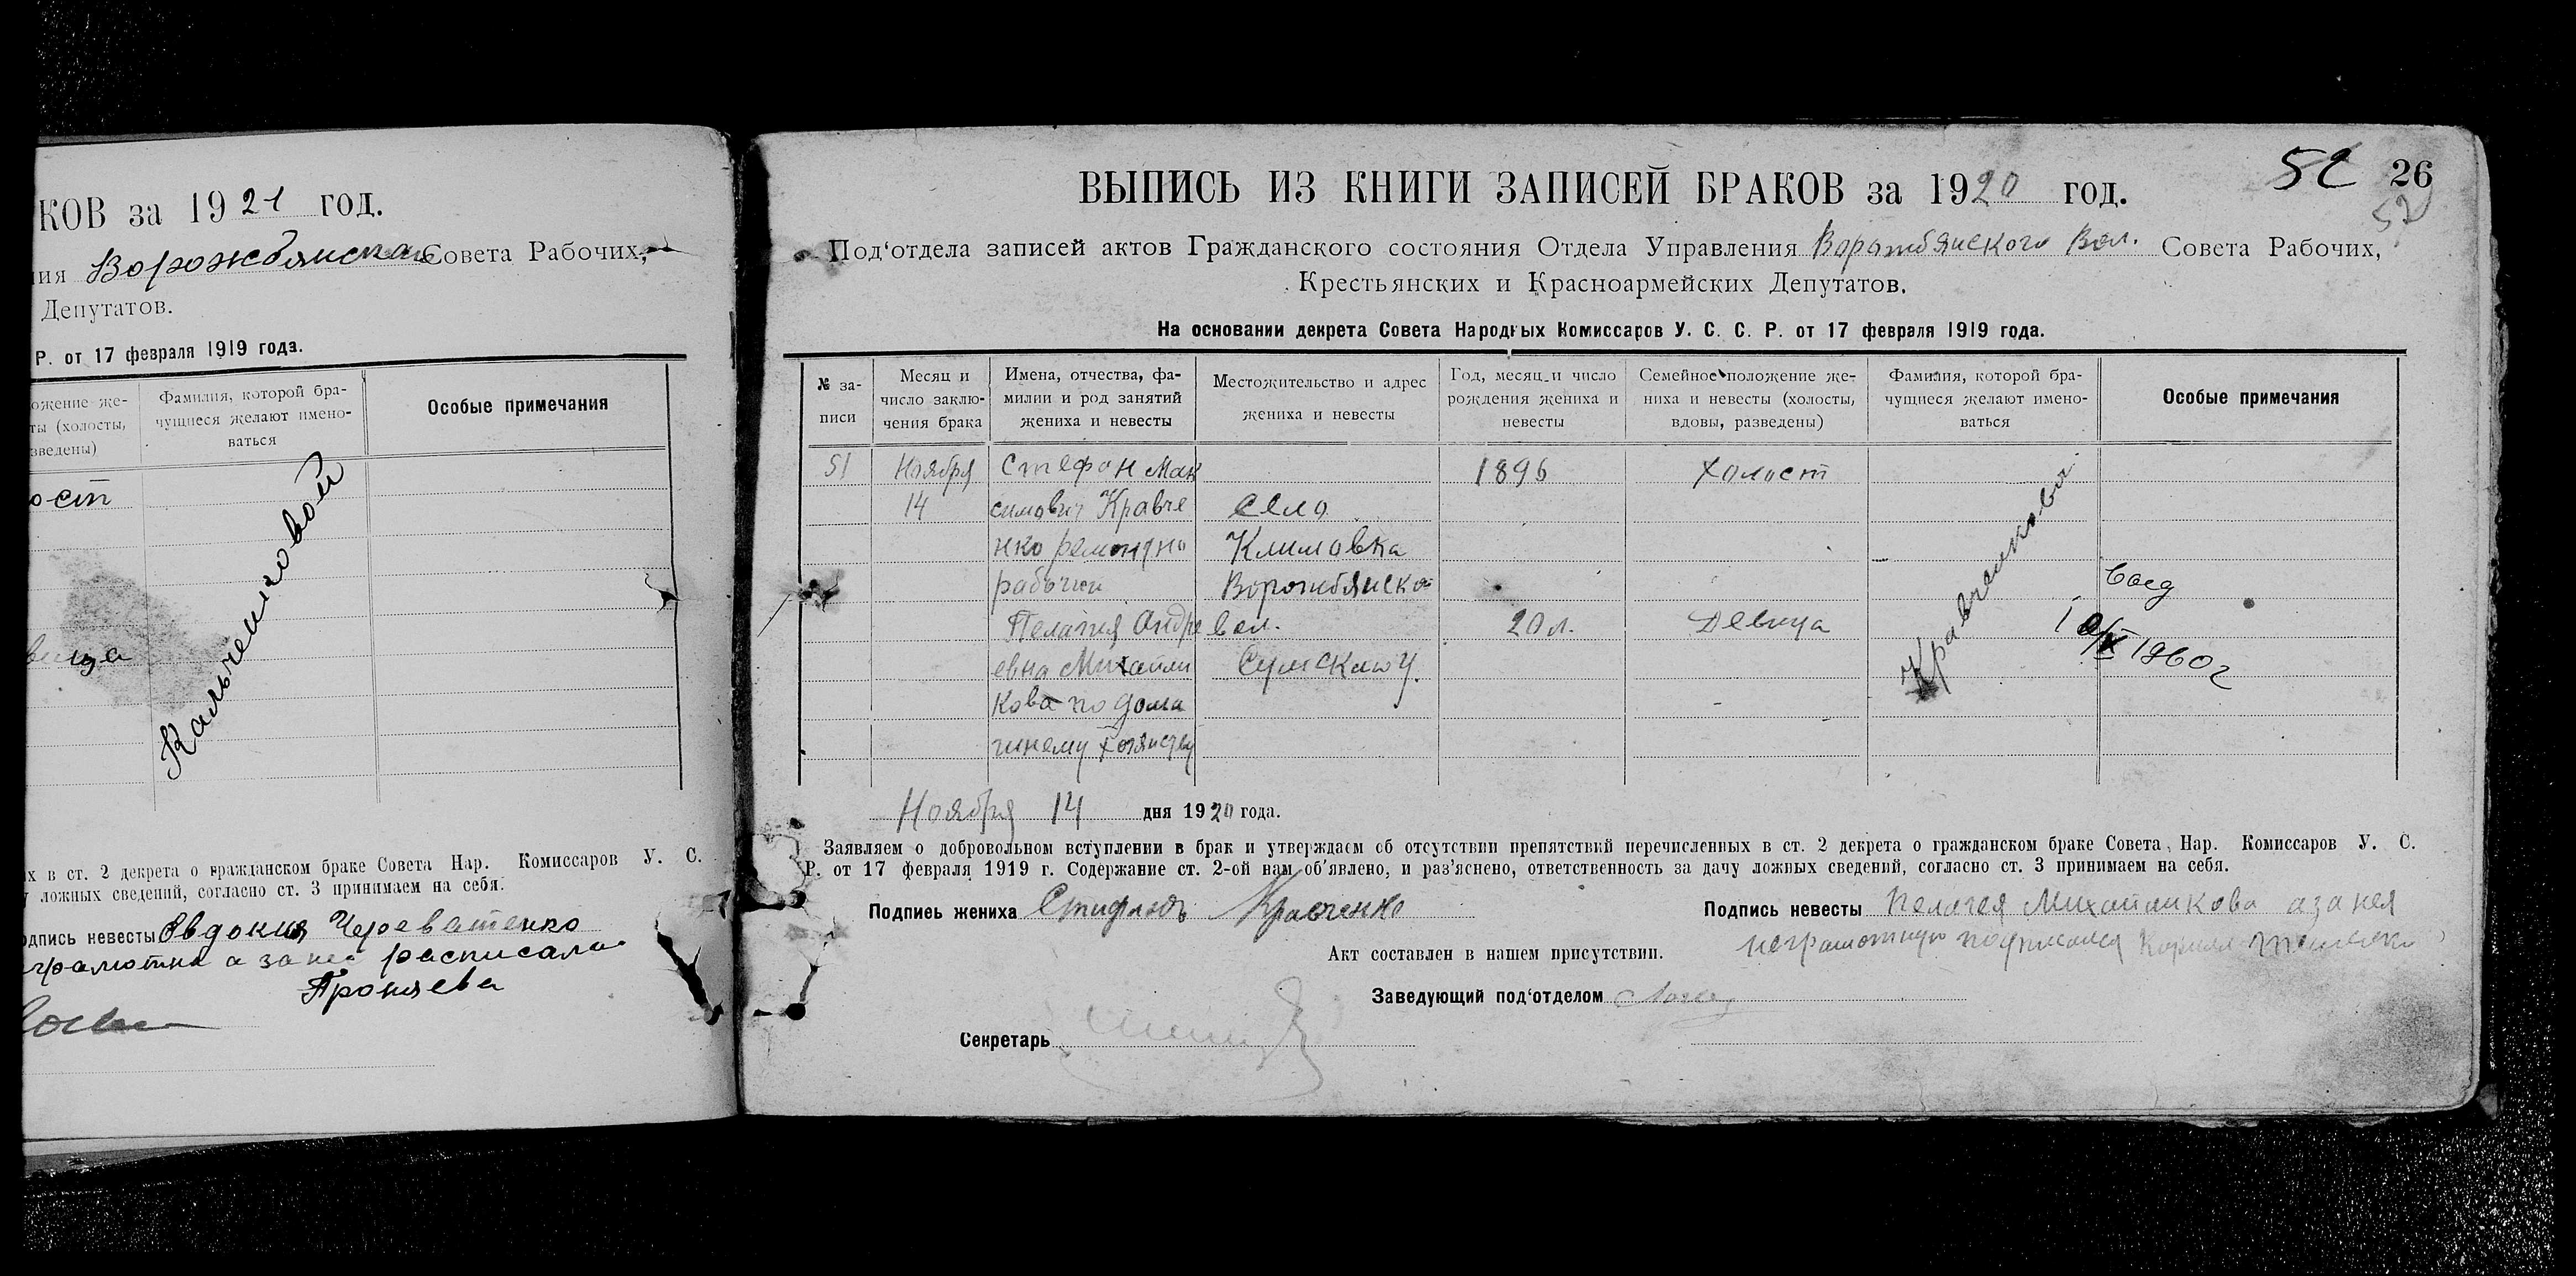 КОВ за 1921 год.
ния Ворожбянская Совета Рабочих,
Депутатов.
Р. от 17 февраля 1919 года.
ожение же-
ты (холосты,
зведены)
Фамилия, которой бра-
чущиеся желают имено-
ваться
Особые примечания
ост
Кальченковой
вица
х в ст. 2 декрета о гражданском браке Совета Нар. Комиссаров У. С.
у ложных сведений, согласно ст. 3 принимаем на себя.
одпись невесты Овдокия Череватенко
грамотна а за нея расписала
Проняева
52 26
52
ВЫПИСЬ ИЗ КНИГИ ЗАПИСЕЙ БРАКОВ за 1920 год.
Под'отдела записей актов Гражданского состояния Отдела Управления Ворожбянского Вол. Совета Рабочих,
Крестьянских и Красноармейских Депутатов.
На основании декрета Совета Народных Комиссаров У. С. С. Р. от 17 февраля 1919 года.
№ за-
писи
Месяц и
число заклю-
чения брака
Имена, отчества, фа-
милии и род занятий
жениха и невесты
Местожительство и адрес
жениха и невесты
Год, месяц и число
рождения жениха и
невесты
Семейное положение же-
ниха и невесты (холосты,
вдовы, разведены)
Фамилия, которой бра-
чущиеся желают имено-
ваться
Особые примечания
51 Ноября Стефан Мак 1896 Холост
14 симович Кравче село
нко ремонтно Климовка
рабочий Ворожбянско
Пелагия Андре вол. 20 л. Девица
евна Михайли Сумскаго у.
кова по дома
шнему хозяйству
Кравченковы
10/X 1960 г
Ноября 14 дня 1920 года.
Заявляем о добровольном вступлении в брак и утверждаем об отсутствии препятствий перечисленных в ст. 2 декрета о гражданском браке Совета Нар. Комиссаров У. С.
Р. от 17 февраля 1919 г. Содержание ст. 2-ой нам об'явлено, и раз'яснено, ответственность за дачу ложных сведений, согласно ст. 3 принимаем на себя.
Подпись жениха Кравченко
Подпись невесты Пелагея Михайликова а за нея
неграмотную подписался
Акт составлен в нашем присутствии.
Заведующий под'отделом
Секретарь